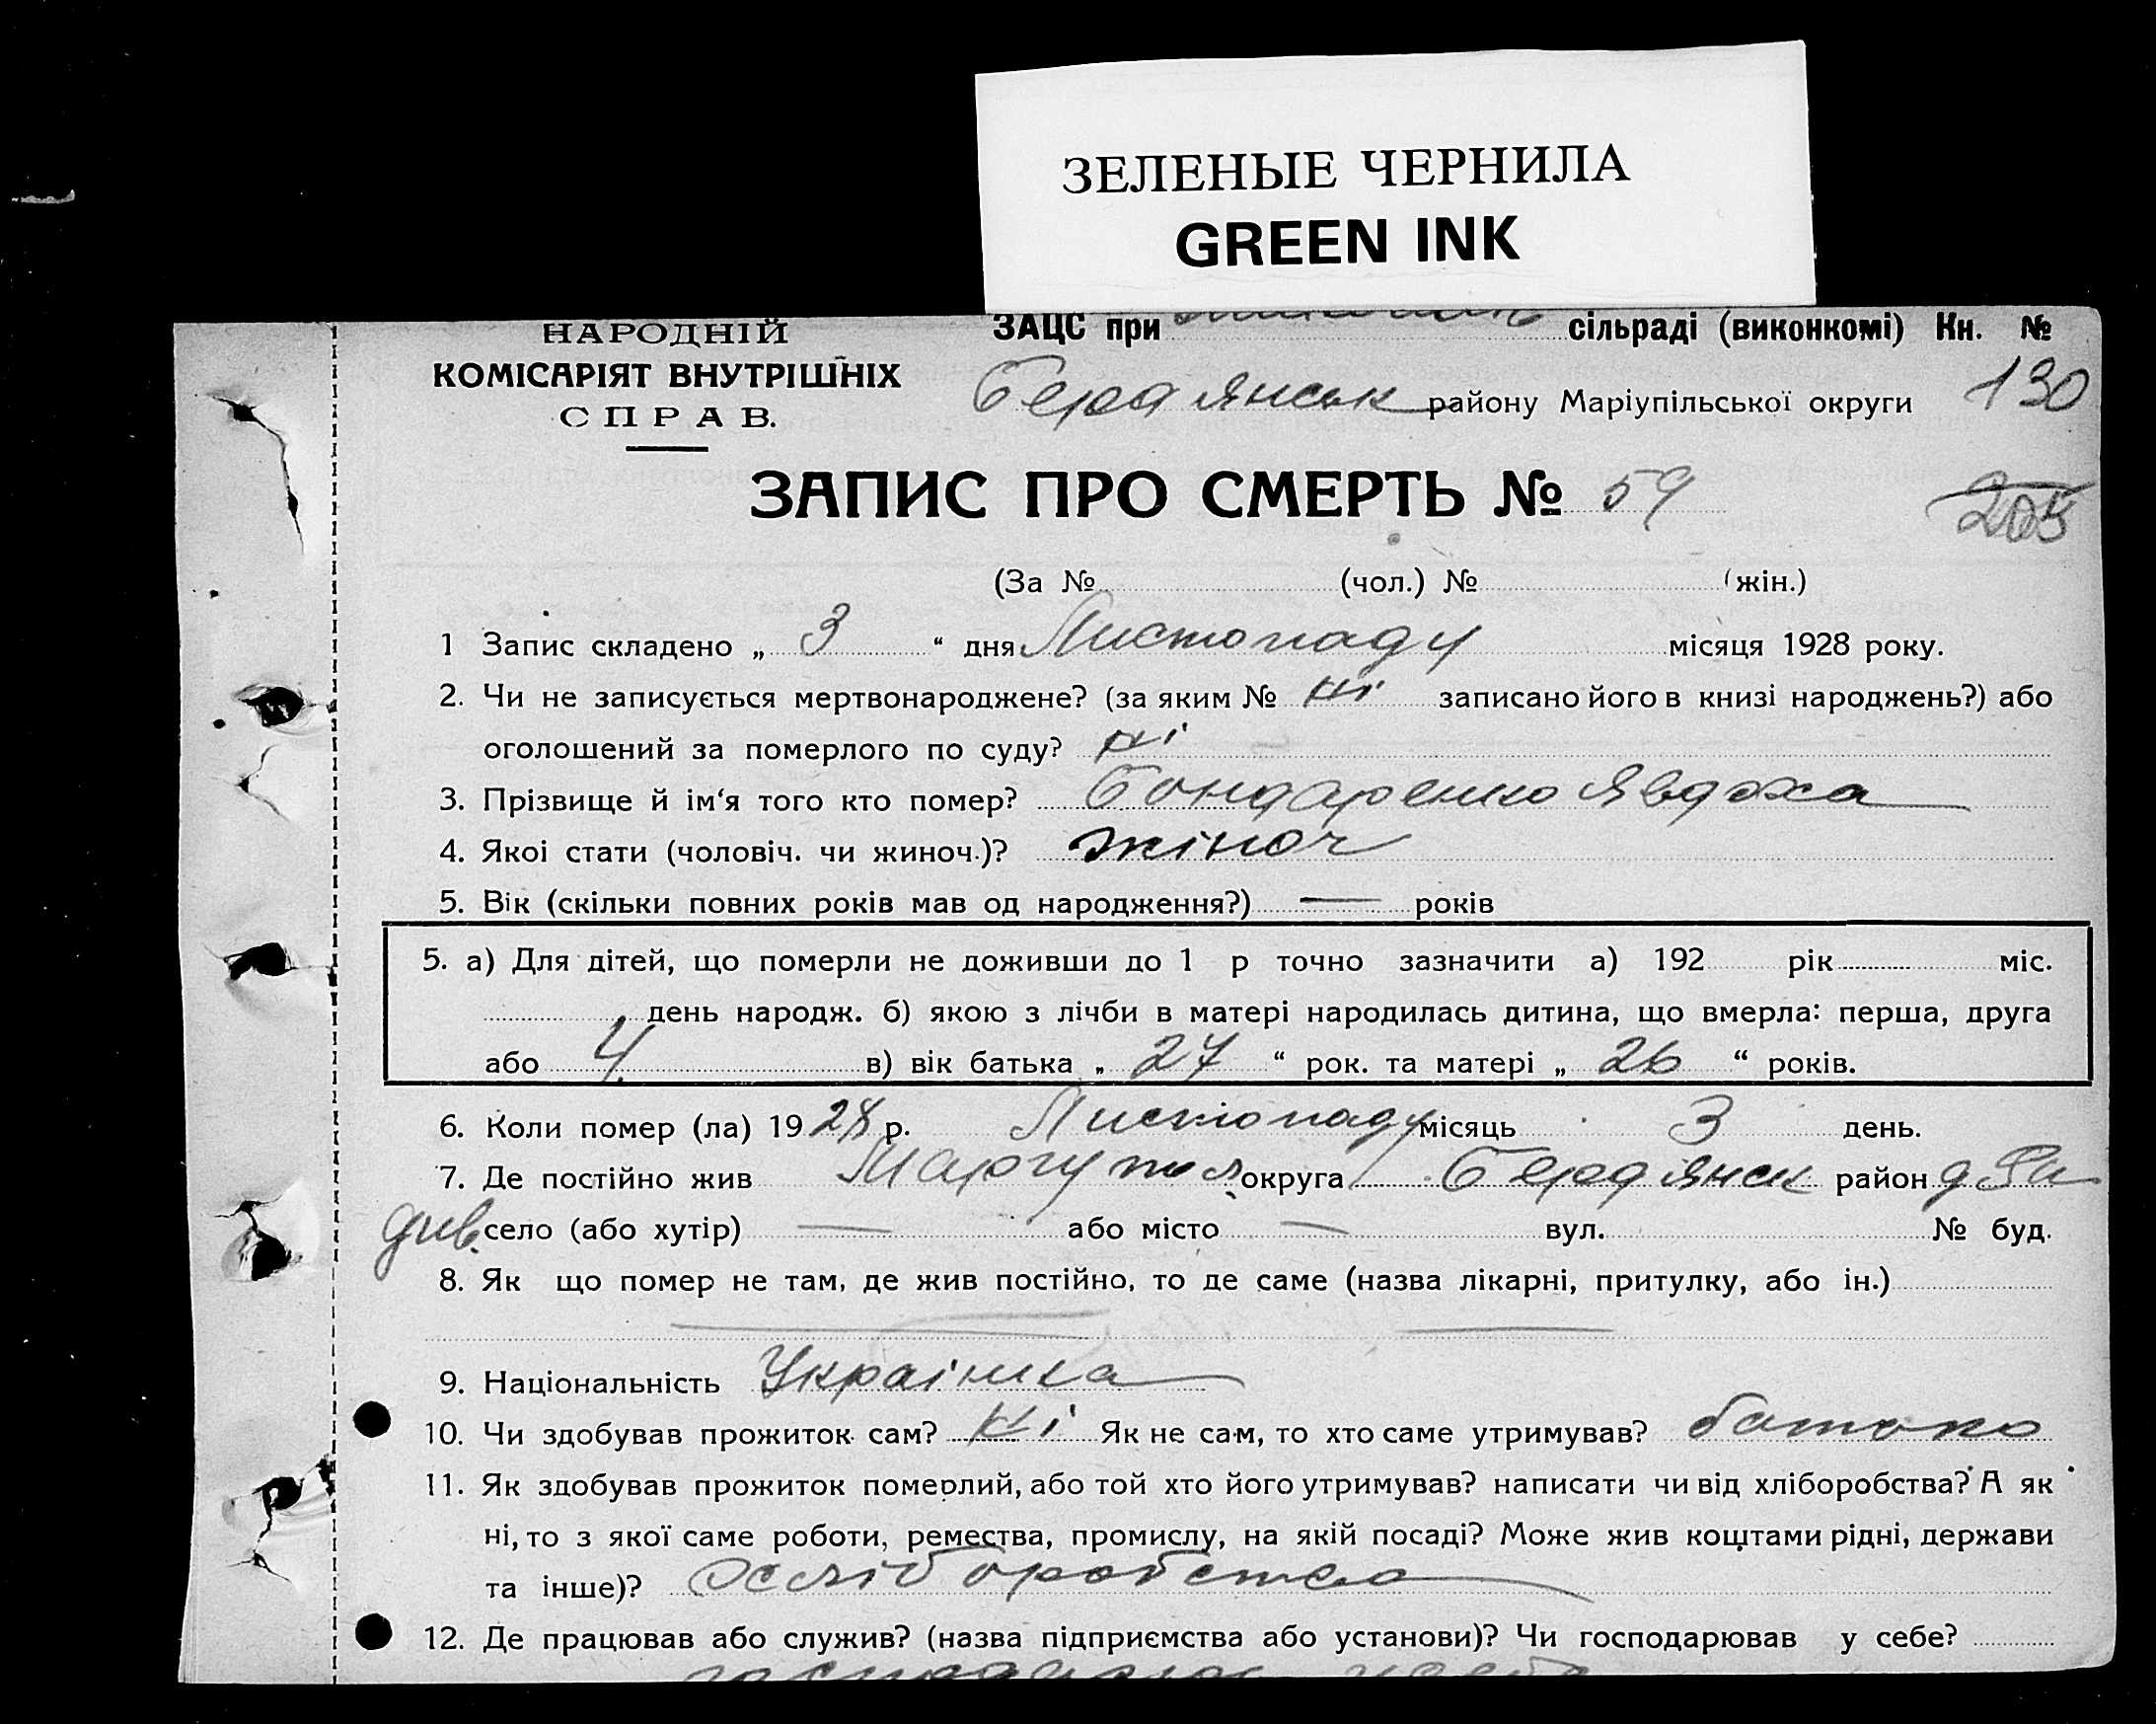 ЗЕЛЕНЫЕ ЧЕРНИЛА
GREEN INK
НАРОДНІЙ
КОМІСАРІЯТ ВНУТРІШНІХ
СПРАВ.
ЗАЦС при сільраді (виконкомі) Кн. №
Бердянськ району Маріупільської округи 130
ЗАПИС ПРО СМЕРТЬ № 59
205
(За № (чол.) № (жін.)
1 Запис складено „ 3 “ дня Листопаду місяця 1928 року.
2. Чи не записується мертвонароджене? (за яким № ні записано його в книзі народжень?) або
оголошений за померлого по суду? ні
3. Прізвище й ім‘я того кто помер? Бондаренко Явдоха
4. Якоі стати (чоловіч. чи жиноч.)? жіноч
5. Вік (скільки повних років мав од народження?) — років
5. а) Для дітей, що померли не доживши до 1 р точно зазначити а) 192 рік міс.
день народж. б) якою з лічби в матері народилась дитина, що вмерла: перша, друга
або 4 в) вік батька „ 27 “ рок. та матері „ 26 “ років.
6. Коли помер (ла) 1928 р. Листопаду місяць 3 день.
7. Де постійно жив Маріупол округа Бердянськ район
село (або хутір) — або місто — вул. № буд.
8. Як що помер не там, де жив постійно, то де саме (назва лікарні, притулку, або ін.)
9. Національність Українка
10. Чи здобував прожиток сам? Ні Як не сам, то хто саме утримував? батько
11. Як здобував прожиток померлий, або той хто його утримував? написати чи від хліборобства? А як
ні, то з якої саме роботи, ремества, промислу, на якій посаді? Може жив коштами рідні, держави
та інше)? хліборобство
12. Де працював або служив? (назва підприємства або установи)? Чи господарював у себе?